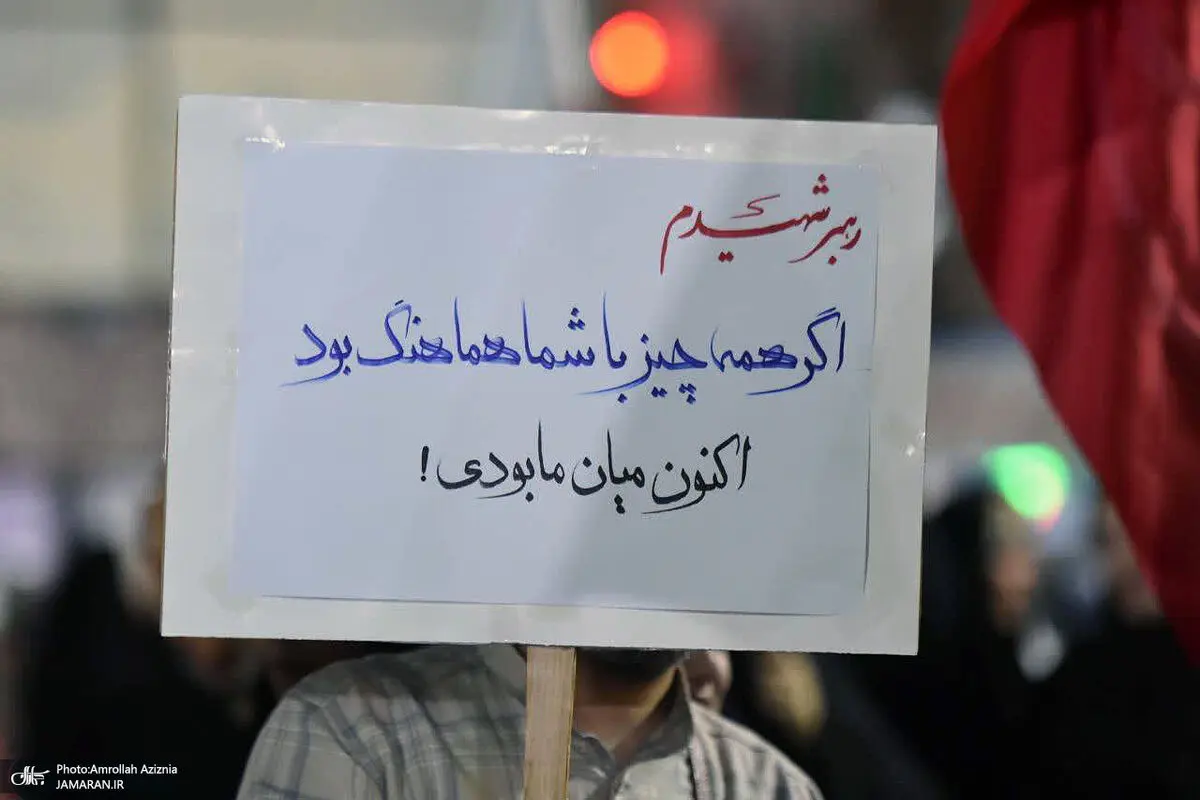 رهبر شهیدم
اگر همه چیز با شما هماهنگ بود
اکنون میان ما بودی!
Photo:Amrollah Aziznia
JAMARAN.IR